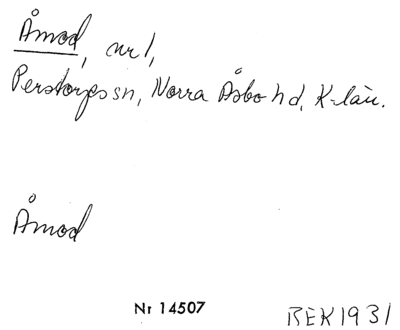 Åmod, nr 1,
Perstorps sn, Norra Åsbo hd, K-län.
Åmod
Nr 14507
BEK 1931